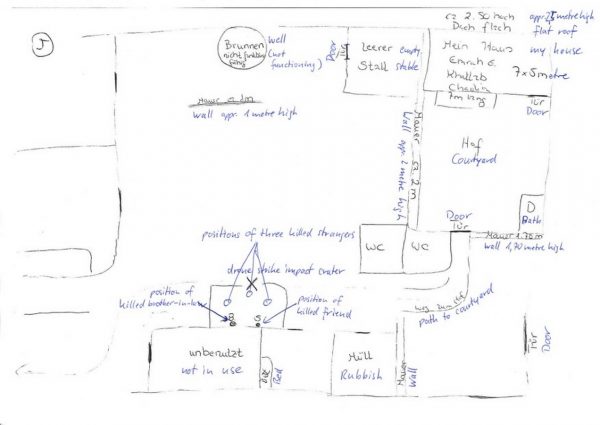 J
ca 2.50 hoch
Dach flach
appr. 2,5 metre high
flat roof
my house
Brunnen
nicht funktions
fähig
well
(not
functioning)
Door
Tür
leerer empty
Stall stable
Mein Haus
Emrah E.
7x5 metre
7m lang
Tür
Door
Mauer ca 1m
wall appr. 1 metre high
Mauer ca. 2 m
Wall appr. 2 metre high
Hof
Courtyard
D
Bath.
Door
Tür
Mauer 1,70 m
wall 1,70 metre high
WC
WC
positions of three killed strangers
drone strike impact crater
position of
killed brother-in-law
position of
killed friend
B
S
path to courtyard
Tür
Door
unbenutzt
not in use
Bed
Müll
Rubbish
Mauer
Wall